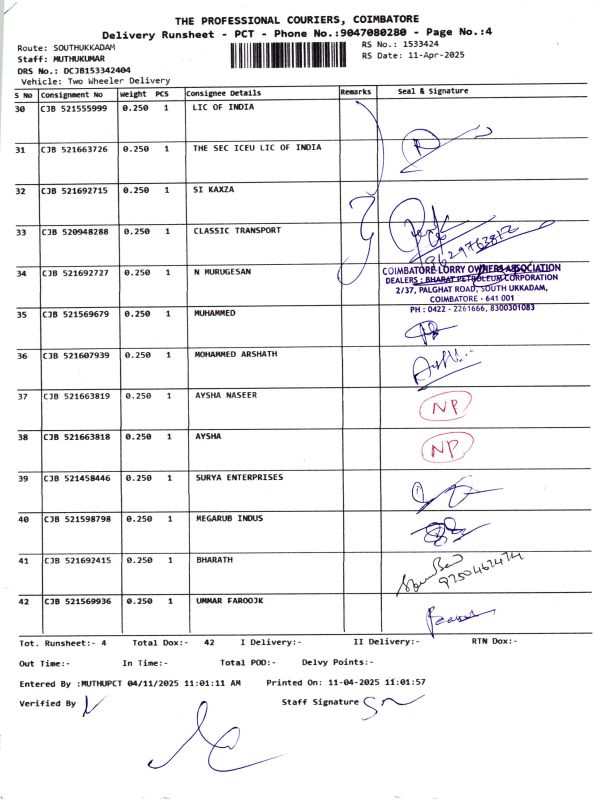 THE PROFESSIONAL COURIERS, COIMBATORE
Delivery Runsheet - PCT - Phone No.:9047080280 - Page No.:4
Route: SOUTHUKKADAM RS No.: 1533424
Staff: MUTHUKUMAR RS Date: 11-Apr-2025
DRS No.: DCJB153342404
Vehicle: Two Wheeler Delivery
S No Consignment No Weight PCS Consignee Details Remarks Seal & Signature
30 CJB 521555999 0.250 1 LIC OF INDIA
31 CJB 521663726 0.250 1 THE SEC ICEU LIC OF INDIA
32 CJB 521692715 0.250 1 SI KAXZA
33 CJB 520948288 0.250 1 CLASSIC TRANSPORT
34 CJB 521692727 0.250 1 N MURUGESAN
COIMBATORE LORRY OWNERS ASSOCIATION
DEALERS : BHARAT PETROLEUM CORPORATION
2/37, PALGHAT ROAD, SOUTH UKKADAM,
COIMBATORE - 641 001
PH : 0422 - 2261666, 8300301083
35 CJB 521569679 0.250 1 MUHAMMED
36 CJB 521607939 0.250 1 MOHAMMED ARSHATH
37 CJB 521663819 0.250 1 AYSHA NASEER NP
38 CJB 521663818 0.250 1 AYSHA NP
39 CJB 521458446 0.250 1 SURYA ENTERPRISES
40 CJB 521598798 0.250 1 MEGARUB INDUS
41 CJB 521692415 0.250 1 BHARATH
42 CJB 521569936 0.250 1 UMMAR FAROOJK
Tot. Runsheet:- 4 Total Dox:- 42 I Delivery:- II Delivery:- RTN Dox:-
Out Time:- In Time:- Total POD:- Delvy Points:-
Entered By :MUTHUPCT 04/11/2025 11:01:11 AM Printed On: 11-04-2025 11:01:57
Verified By Staff Signature